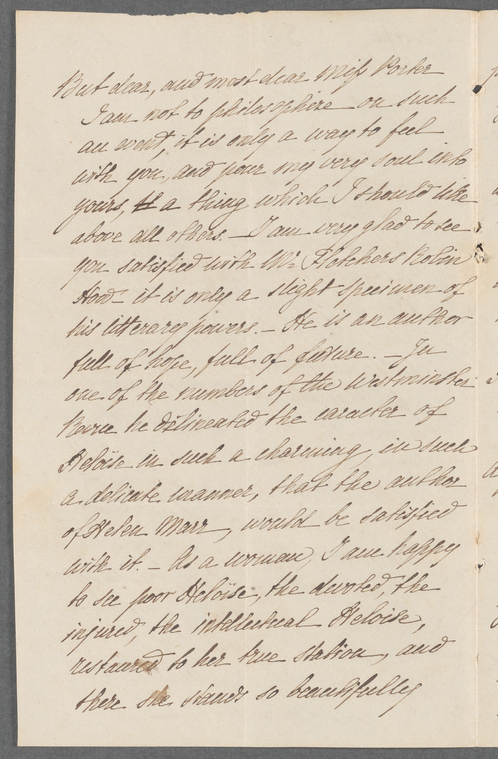 But dear, and most dear Miss Porter
I am not to philosophize on such
an event, it is only a way to feel
with you, and pour my very soul into
yours, a thing which I should like
above all others. — I am very glad to see
you satisfied with Mr. Fletchers Robin
Hood — it is only a slight specimen of
his litterary powers. — He is an author
full of hope, full of future. — In
one of the numbers of the Westminster
he délineated the caracter of
Heloïse in such a charming, in such
a delicate manner, that the author
of Helen Marr, would be satisfied
with it. — As a woman, I am happy
to see poor Heloïse, the devoted, the
injured, the intellectual Heloïse,
restaured to her true station, and
there she stands so beautifully